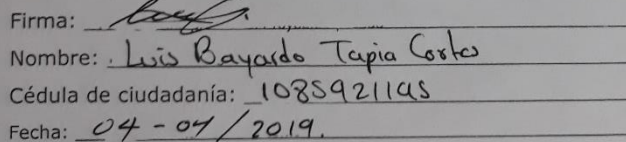 Firma:
Nombre: Luis Bayardo Tapia Cortes
Cédula de ciudadanía: 1085921195
Fecha: 04-04/2019.